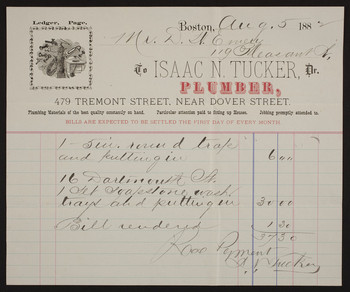 Ledger, Page,
Boston, Aug. 5 188
Mrs. L. A. Emery
119 Pleasant St.
To ISAAC N. TUCKER, Dr.
PLUMBER,
479 TREMONT STREET, NEAR DOVER STREET.
Plumbing Materials of the best quality constantly on hand. Particular attention paid to fitting up Houses. Jobbing promptly attended to.
BILLS ARE EXPECTED TO BE SETTLED THE FIRST DAY OF EVERY MONTH.
1 5 in. round trap
and putting in 6 00
16 Dartmouth St.
1 Set Soapstone wash
trays and putting in 30 00
Bill rendered 1 30
37 30
Rec Payment
I. N. Tucker